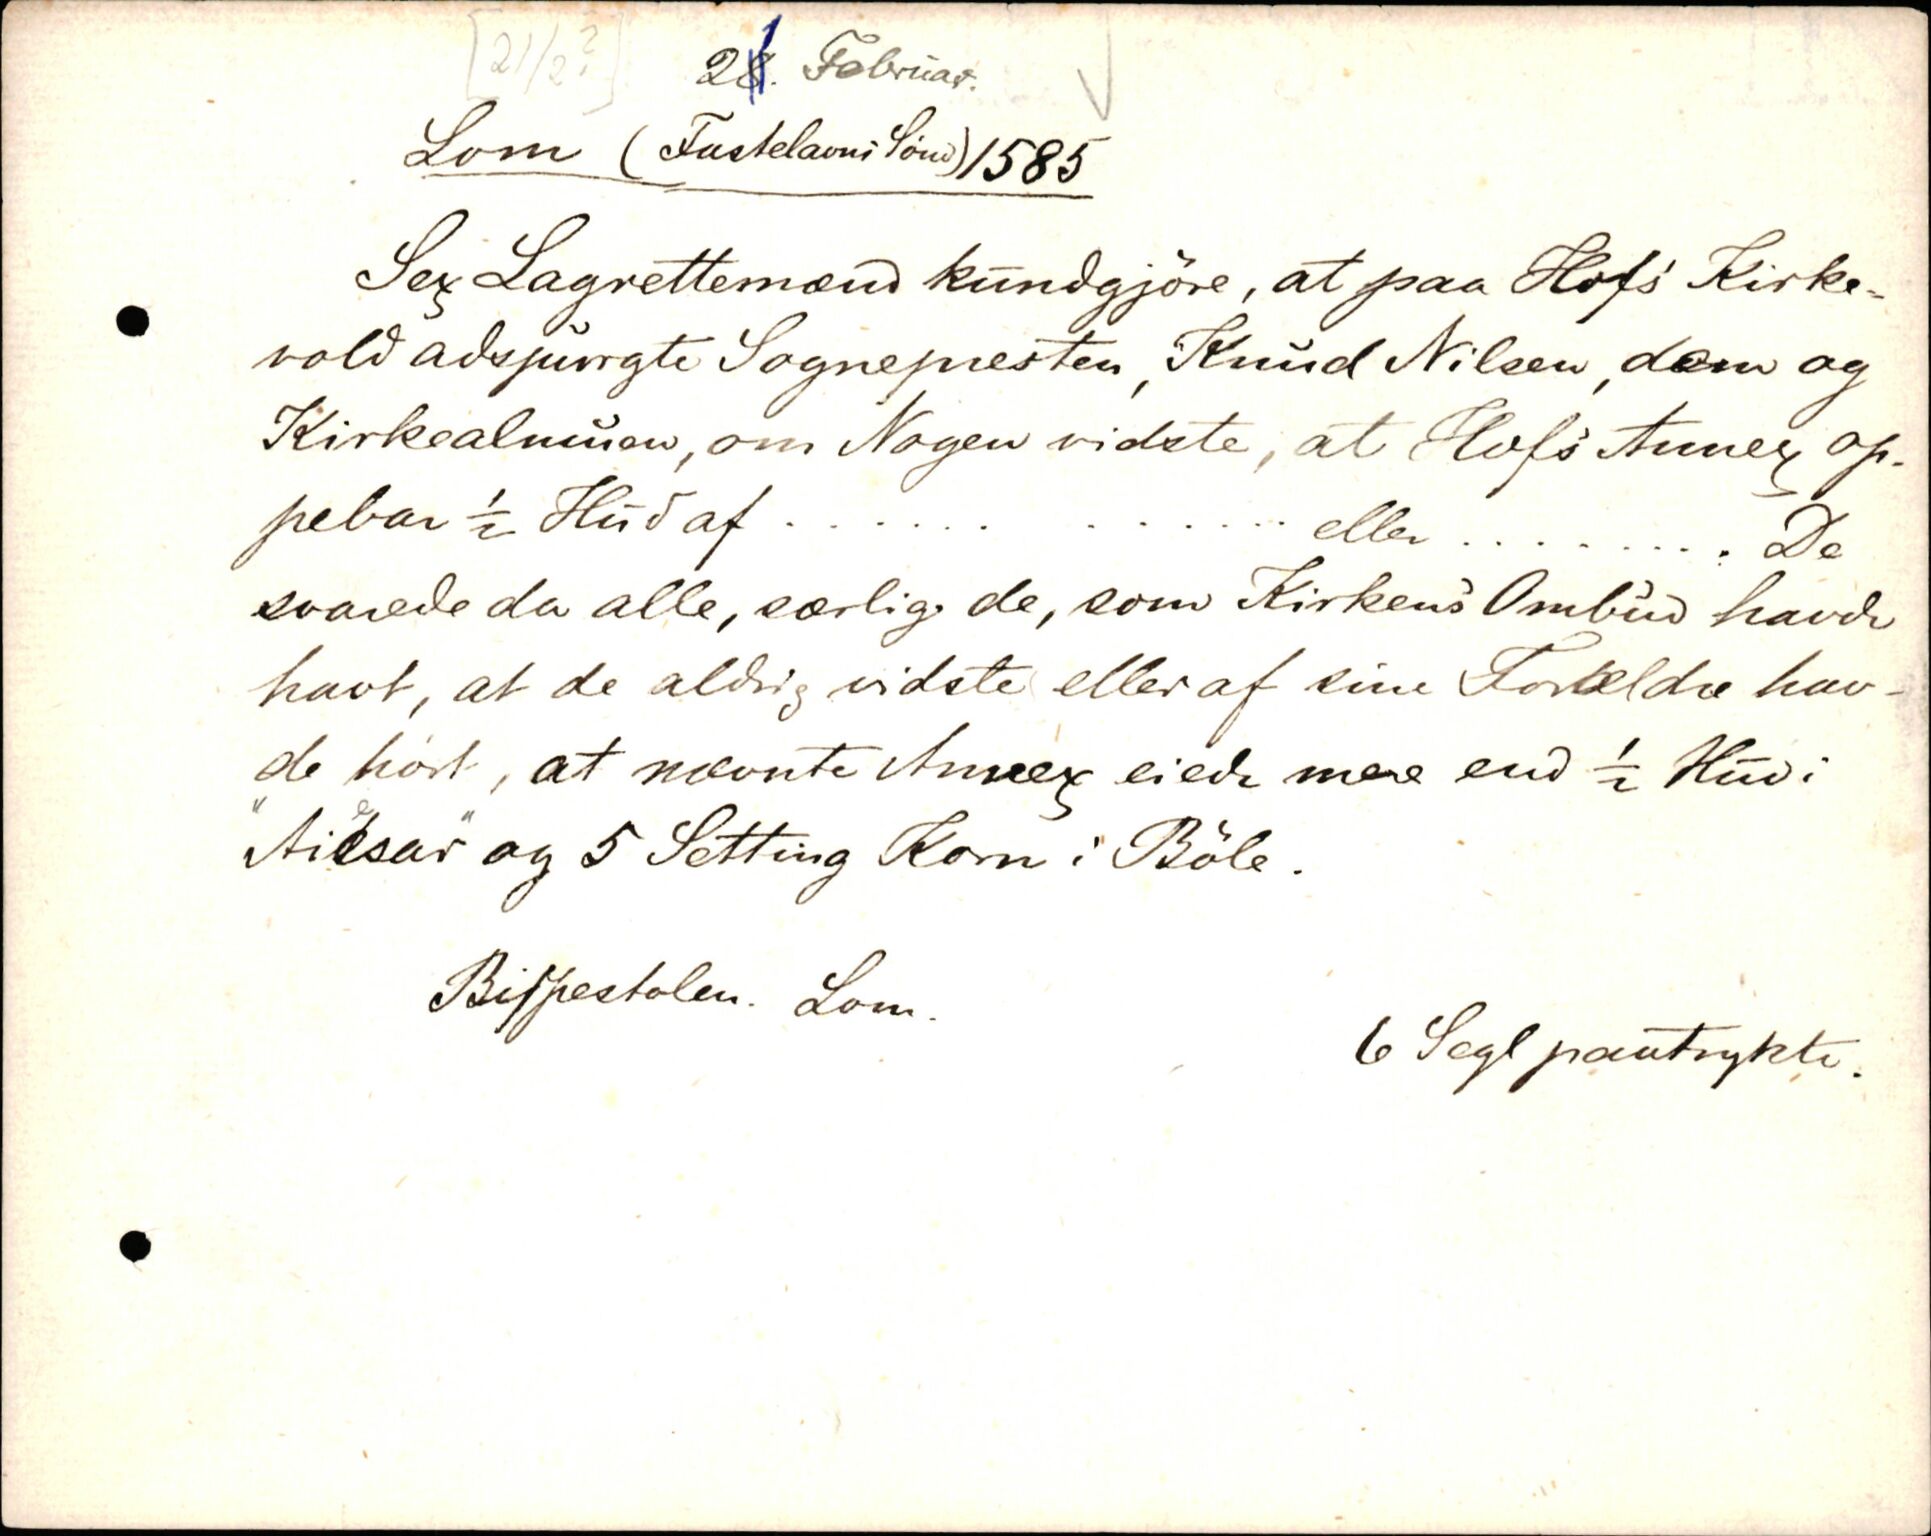 [21/2?] 21. Februar.
Lom (Fastelavns Sönd) 1585
Sex Lagrettemænd kundgjöre, at paa Hofs Kirke-
vold adspurgte Sognepresten, Knud Nilsen, dem og
Kirkealmuen, om Nogen vidste, at Hofs Annex op-
pebar ½ Hud af . . . . . . . . . . . . . eller . . . . . . . . De
svarede da alle, særlig de, som Kirkens Ombud havde
havt, at de aldrig vidste eller af sine Forældre hav-
de hört, at nævnte Annex eiede mere end ½ Hud i
og 5 Setting Korn i Böle.
Bispestolen. Lom.
6 Segl paatrykte.